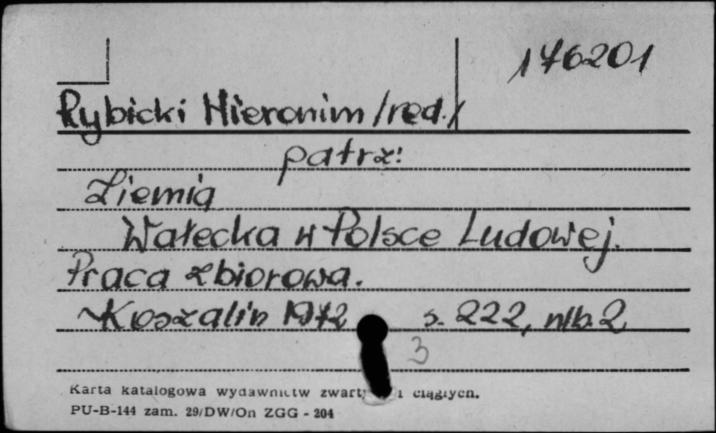 176201
Rybicki Hieronim /red./
patrz:
Ziemia
Wałecka w Polsce Ludowej.
Praca zbiorowa.
Koszalin 1972 s. 222, nlb. 2
3
Karta katalogowa wydawnictw zwartych i ciągłych.
PU-B-144 zam. 29/DW/On ZGG - 204